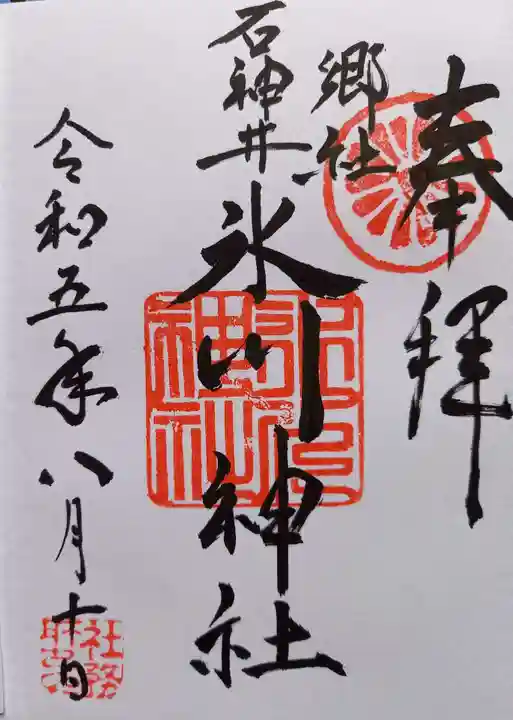 奉拝
郷社
石神井
氷川神社
令和五年八月十日
氷川
神社
社務